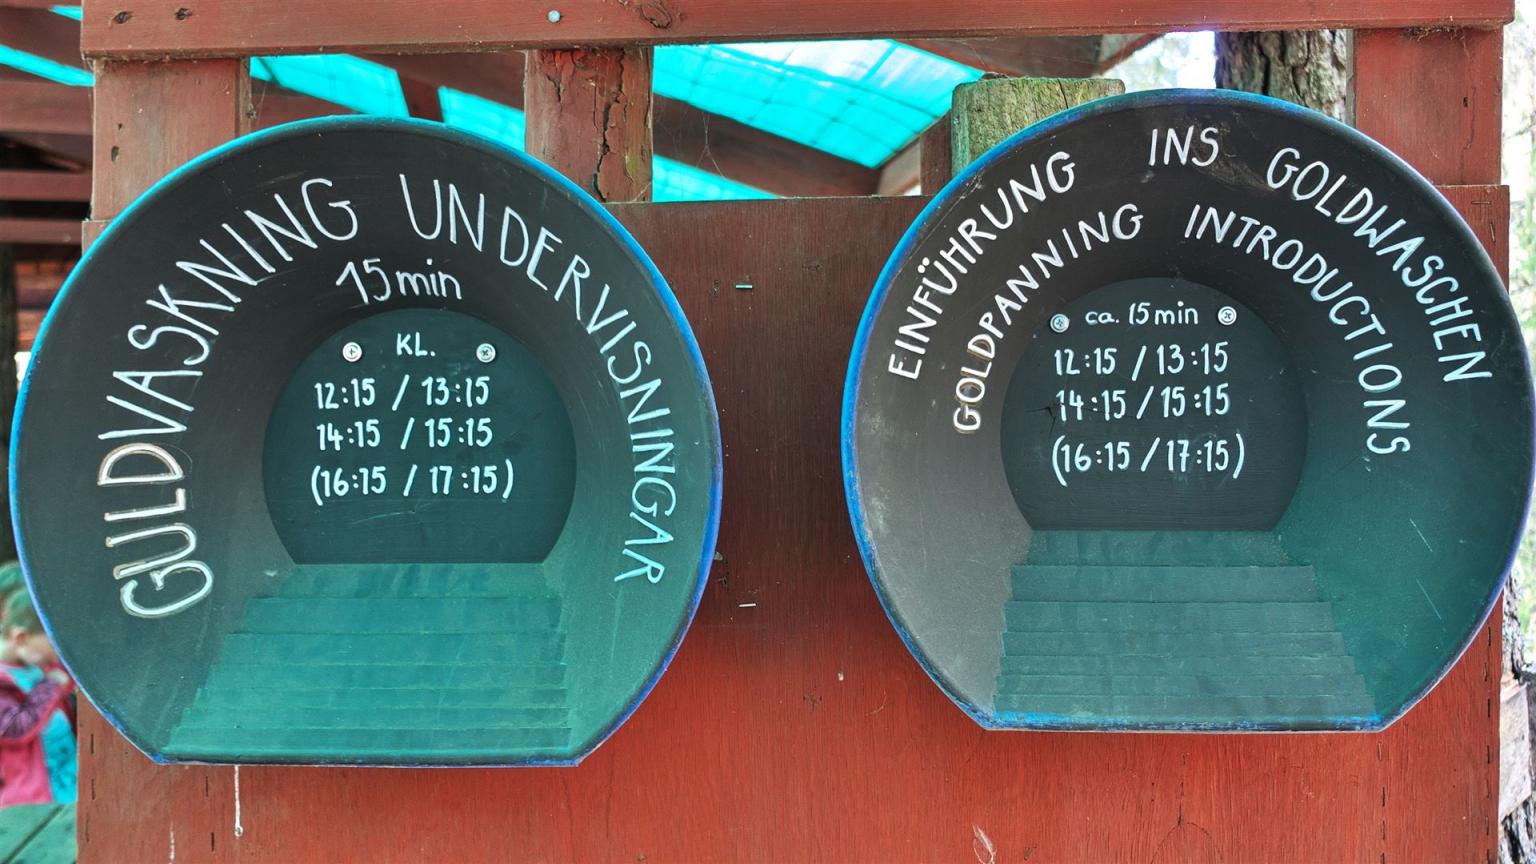 GULDVASKNING UNDERVISNINGAR
15min
KL.
12:15 / 13:15
14:15 / 15:15
(16:15 / 17:15)
EINFÜHRUNG INS GOLDWASCHEN
GOLDPANNING INTRODUCTIONS
ca. 15min
12:15 / 13:15
14:15 / 15:15
(16:15 / 17:15)